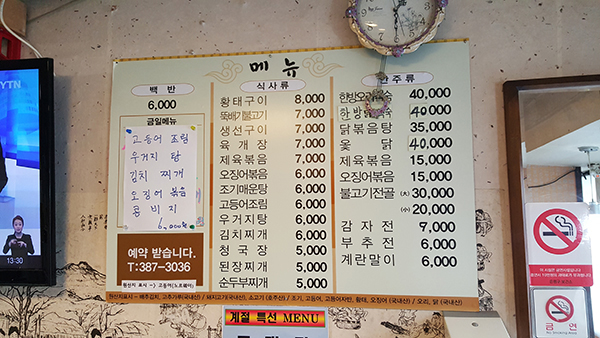 YTN
13:30
메 뉴
백 반
6,000
금일메뉴
고등어 조림
우거지 탕
김치 찌개
오징어 볶음
콩비지
6,000원
예약 받습니다.
T:387-3036
원산지 표시 -> 고등어(노르웨이)
식사류
황태구이 8,000
뚝배기불고기 7,000
생선구이 7,000
육개장 7,000
제육볶음 7,000
오징어볶음 6,000
조기매운탕 6,000
고등어조림 6,000
우거지탕 6,000
김치찌개 6,000
청국장 5,000
된장찌개 5,000
순두부찌개 5,000
안주류
한방오리백숙 40,000
한방 40,000
닭볶음탕 35,000
옻 닭 40,000
제육볶음 15,000
오징어볶음 15,000
불고기전골 (大) 30,000
(小) 20,000
감자전 7,000
부추전 6,000
계란말이 6,000
원산지표시 - 배추김치, 고추가루(국내산) / 돼지고기(국내산), 소고기 (호주산) / 조기, 고등어, 고등어자반, 황태, 오징어 (국내산) / 오리, 닭 (국내산)
계절 특선 MENU
금 연